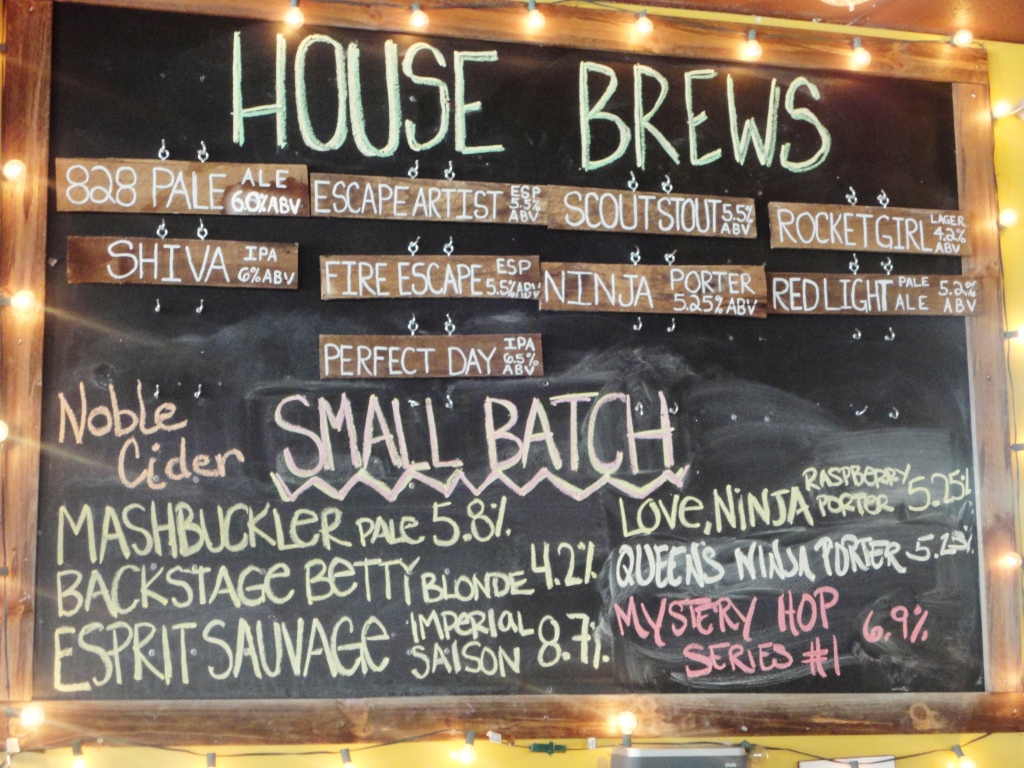 HOUSE BREWS
828 PALE ALE 6.0% ABV
ESCAPE ARTIST ESP 5.5% ABV
SCOUT STOUT 5.5% ABV
ROCKET GIRL LAGER 4.2% ABV
SHIVA IPA 6% ABV
FIRE ESCAPE ESP 5.5% ABV
NINJA PORTER 5.25% ABV
REDLIGHT PALE ALE 5.2% ABV
PERFECT DAY IPA 6.5% ABV
Noble
Cider
SMALL BATCH
MASHBUCKLER PALE 5.8%
BACKSTAGE BETTY BLONDE 4.2%
ESPRIT SAUVAGE IMPERIAL SAISON 8.7%
LOVE, NINJA RASPBERRY PORTER 5.25%
QUEEN'S NINJA PORTER
MYSTERY HOP
SERIES #1 6.9%